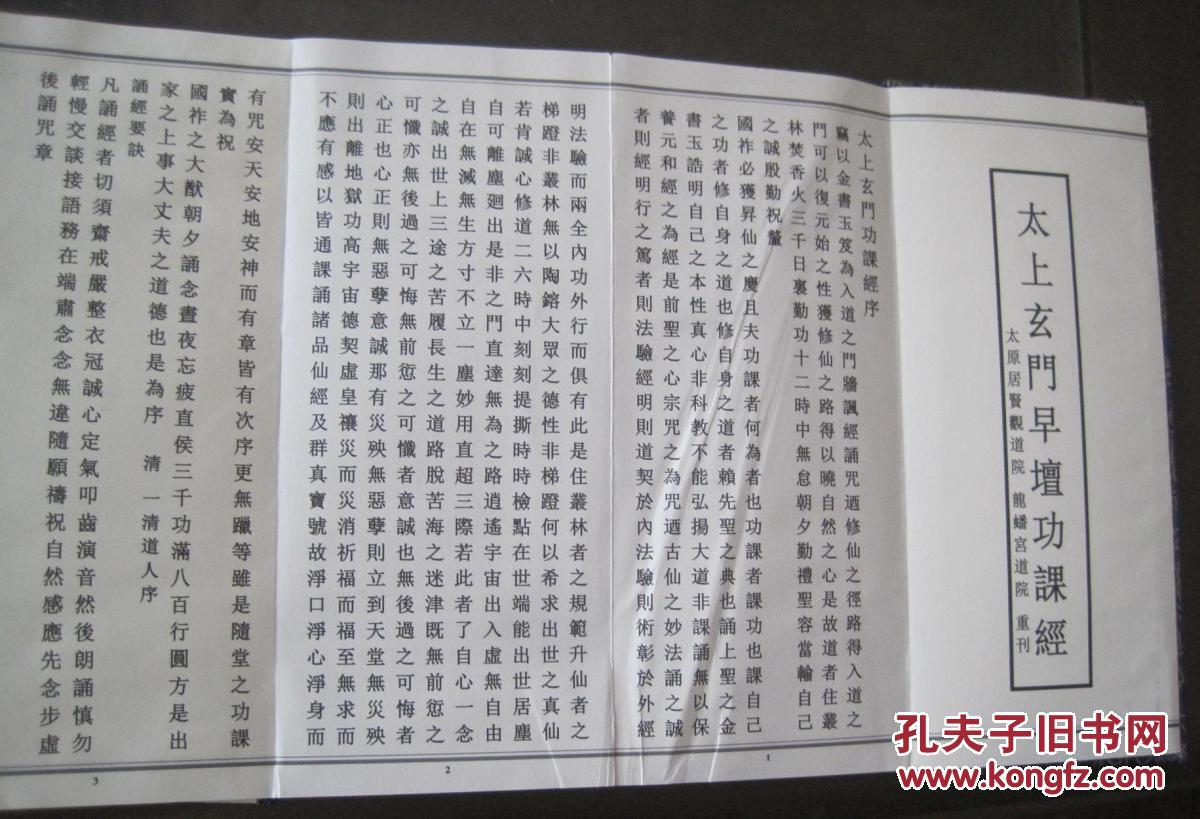 太上玄門早壇功課經
太原居賢觀道院 龍蟠宮道院 重刊
太上玄門功課經序
竊以金書玉笈為入道之門牆諷經誦咒迺修仙之徑路得入道之
門可以復元始之性獲修仙之路得以曉自然之心是故道者住叢
林焚香火三千日裏勤功十二時中無怠朝夕勤禮聖容當輸自己
之誠殷勤祝釐
國祚必獲昇仙之慶且夫功課者何為者也功課者課功也課自己
之功者修自身之道也修自身之道者賴先聖之典也誦上聖之金
書玉誥明自己之本性真心非科教不能弘揚大道非課誦無以保
養元和經之為經是前聖之心宗咒之為咒迺古仙之妙法誦之誠
者則經明行之篤者則法驗經明則道契於內法驗則術彰於外經
1
明法驗而兩全內功外行而俱有此是住叢林者之規範升仙者之
梯蹬非叢林無以陶鎔大眾之德性非梯蹬何以希求出世之真仙
若肯誠心修道二六時中刻刻提撕時時檢點在世端能出世居塵
自可離塵迴出是非之門直達無為之路逍遙宇宙出入虛無自由
自在無滅無生方寸不立一塵妙用直超三際若此者了自心一念
之誠出世上三途之苦履長生之道路脫苦海之迷津既無前愆之
可懺亦無後過之可悔無前愆之可懺者意誠也無後過之可悔者
心正也心正則無惡孽意誠那有災殃無惡孽則立到天堂無災殃
則出離地獄功高宇宙德契虛皇禳災而災消祈福而福至無求而
不應有感以皆通課誦諸品仙經及群真寶號故淨口淨心淨身而
2
有咒安天安地安神而有章皆有次序更無躐等雖是隨堂之功課
實為祝
國祚之大猷朝夕誦念晝夜忘疲直侯三千功滿八百行圓方是出
家之上事大丈夫之道德也是為序 清一清道人序
誦經要訣
凡誦經者切須齋戒嚴整衣冠誠心定氣叩齒演音然後朗誦慎勿
輕慢交談接語務在端肅念念無違隨願禱祝自然感應先念步虛
後誦咒章
3
孔夫子旧书网
www.kongfz.com